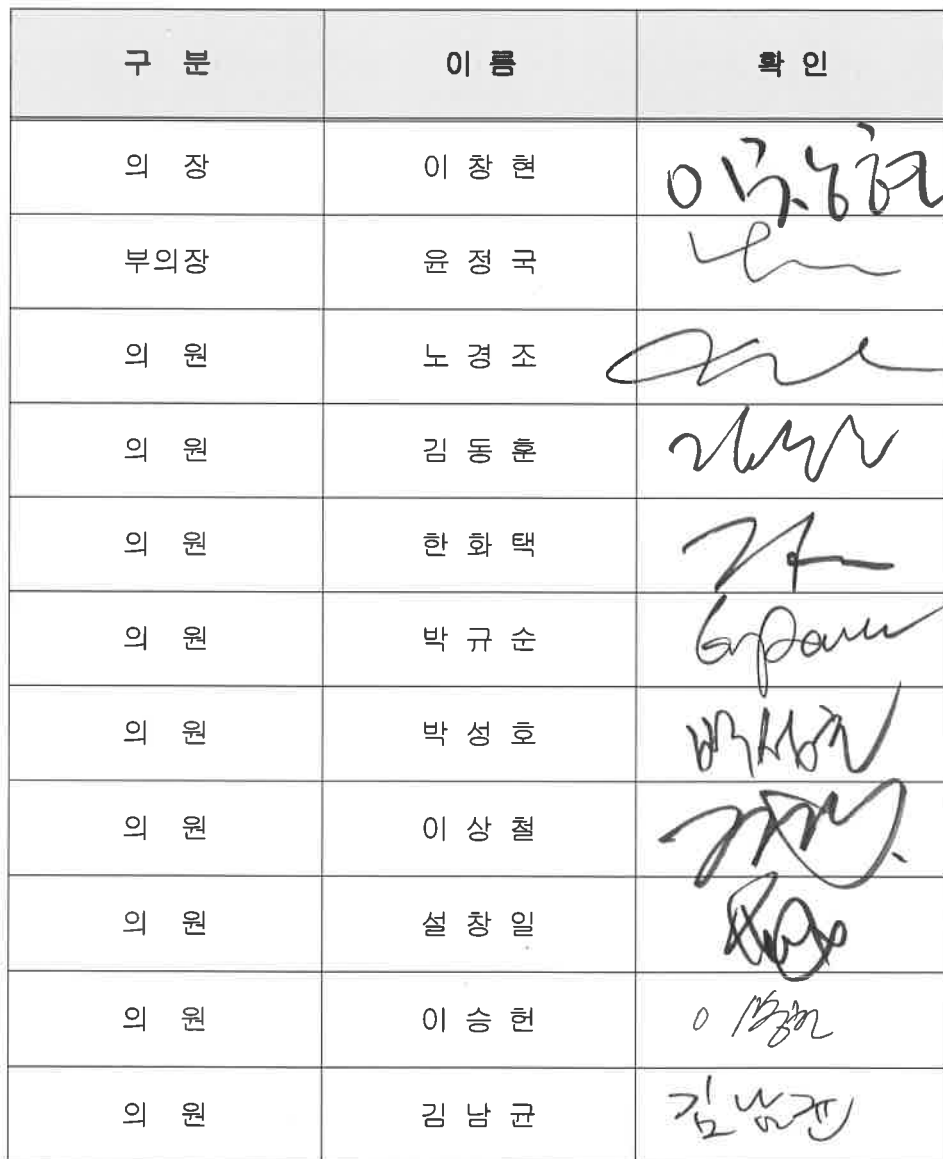 구 분 이 름 확 인
의 장 이 창 현 이창현
부의장 윤 정 국
의 원 노 경 조
의 원 김 동 훈
의 원 한 화 택
의 원 박 규 순
의 원 박 성 호 박성호
의 원 이 상 철
의 원 설 창 일
의 원 이 승 헌 이승헌
의 원 김 남 균 김남균